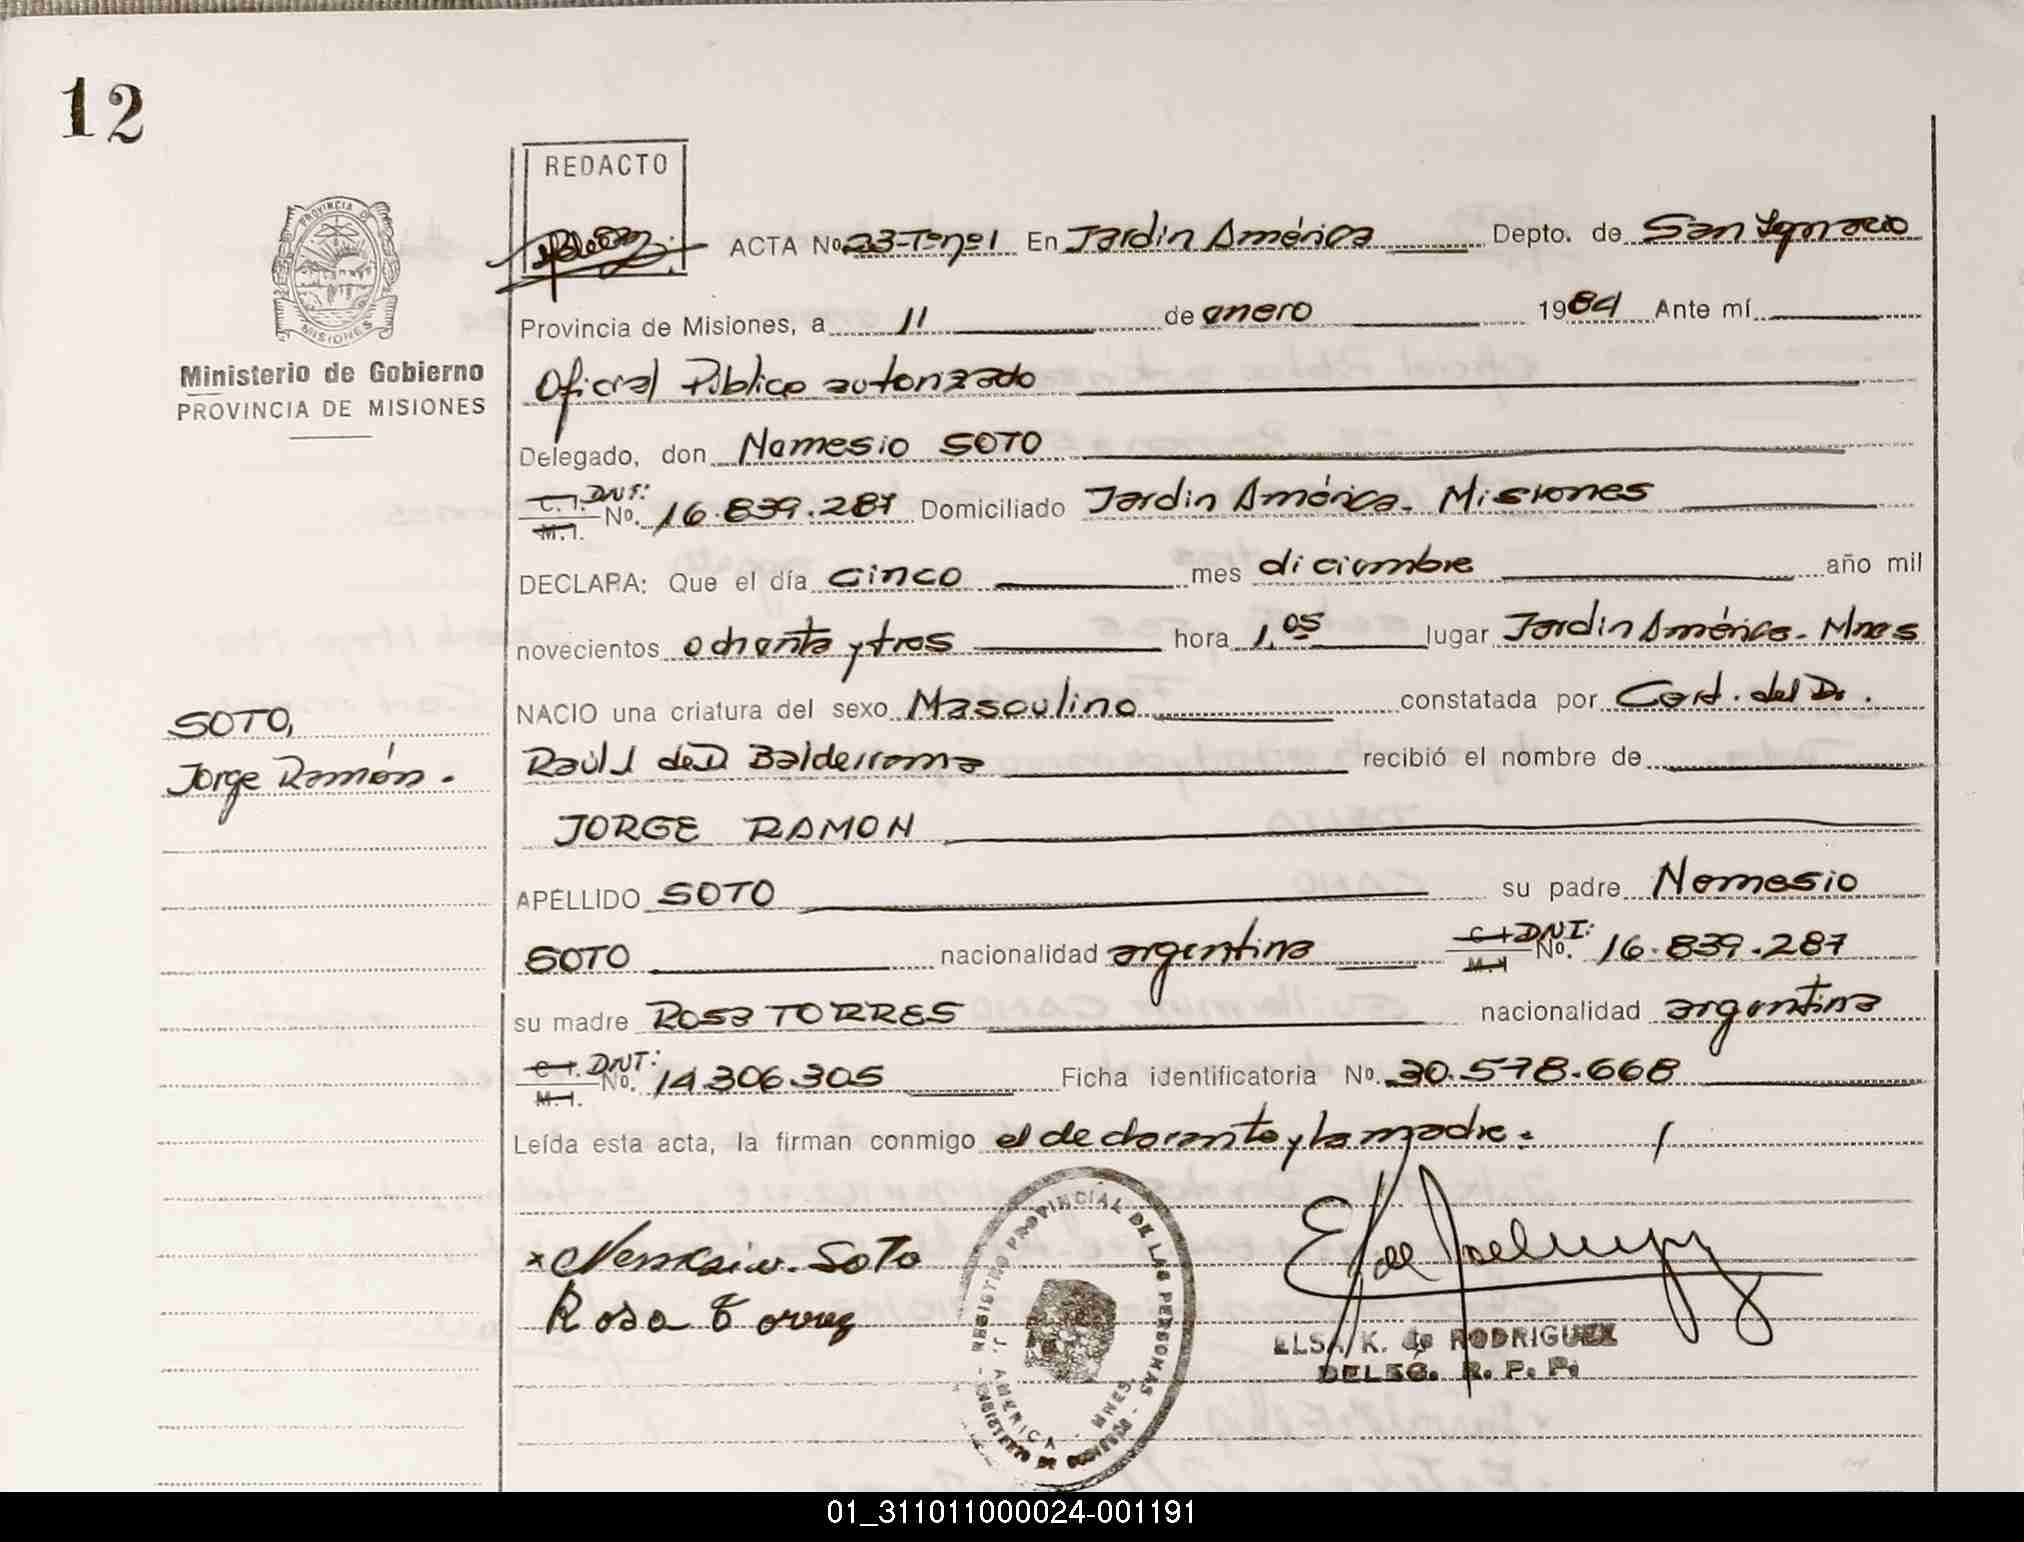 12
REDACTO
ACTA Nº 23-Tº nº 1 En Jardín América Depto. de San Ignacio
Provincia de Misiones, a 11 de enero 1984 Ante mí
Ministerio de Gobierno
PROVINCIA DE MISIONES
PROVINCIA DE
MISIONES
Oficial Público autorizado
Delegado, don Nemesio SOTO
C.I. DNI: M.I. Nº. 16.839.287 Domiciliado Jardín América. Misiones
DECLARA: Que el día cinco mes diciembre año mil
novecientos ochenta y tres hora 1,05 lugar Jardín América. Mnes
NACIO una criatura del sexo Masculino constatada por Cert. del Dr.
SOTO,
Jorge Ramón.
Raúl J. de D Balderrama recibió el nombre de
JORGE RAMON
APELLIDO SOTO su padre Nemesio
SOTO nacionalidad argentina C.I. DNI: M.I. Nº. 16.839.287
su madre Rosa TORRES nacionalidad argentina
C.I. DNI: M.I. Nº. 14.306.305 Ficha identificatoria Nº. 30.578.668
Leída esta acta, la firman conmigo el declarante y la madre.
x Nemesio. Soto
Rosa Torres
REGISTRO PROVINCIAL DE LAS PERSONAS
J. AMERICA - MNES.
ELSA K. de RODRIGUEZ
DELEG. R. P. P.
01_311011000024-001191